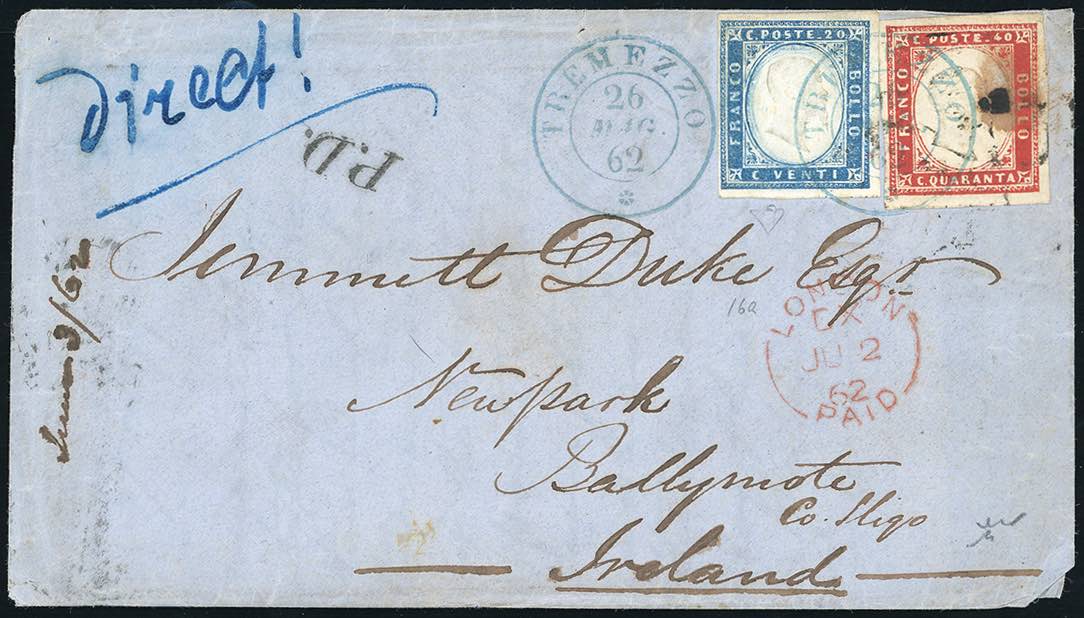 direct!
P.D.
TREMEZZO
26
MAG.
62
C. POSTE. 20
FRANCO
BOLLO
C. VENTI
C. POSTE. 40
FRANCO
BOLLO
C. QUARANTA
Jemmett Duke Esqr.
Newpark
Ballymote
Co. Sligo
Ireland
LONDON
CX
JU 2
62
PAID
3/62
162